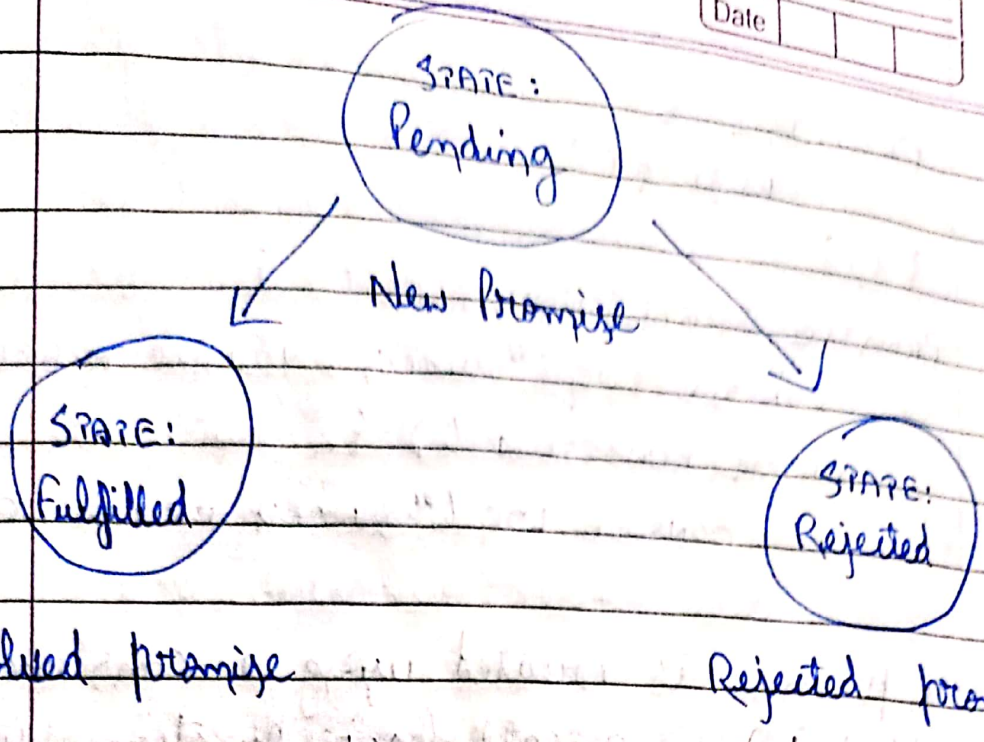 Date
STATE:
Pending
New Promise
STATE:
Fulfilled
STATE:
Rejected
promise
Rejected